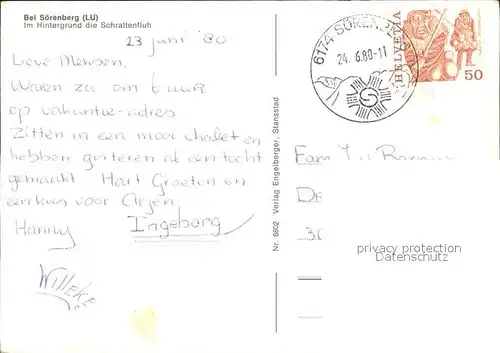 Bei Sörenberg (LU)
Im Hintergrund die Schrattenfluh
23 juni '80
Lieve Mensen,
Waren zo om 6 uur
op vakantie-adres
Zitten in een mooi chalet en
hebben gisteren al een tocht
gemaakt Hart Groeten en
een kus voor Arjen
Hanny
Ingeborg
Willeke
Nr. 8802 Verlag Engelberger, Stansstad
6174 SÖRENBERG
24. 6.80-11
HELVETIA
50
Fam
De
30
privacy protection
Datenschutz